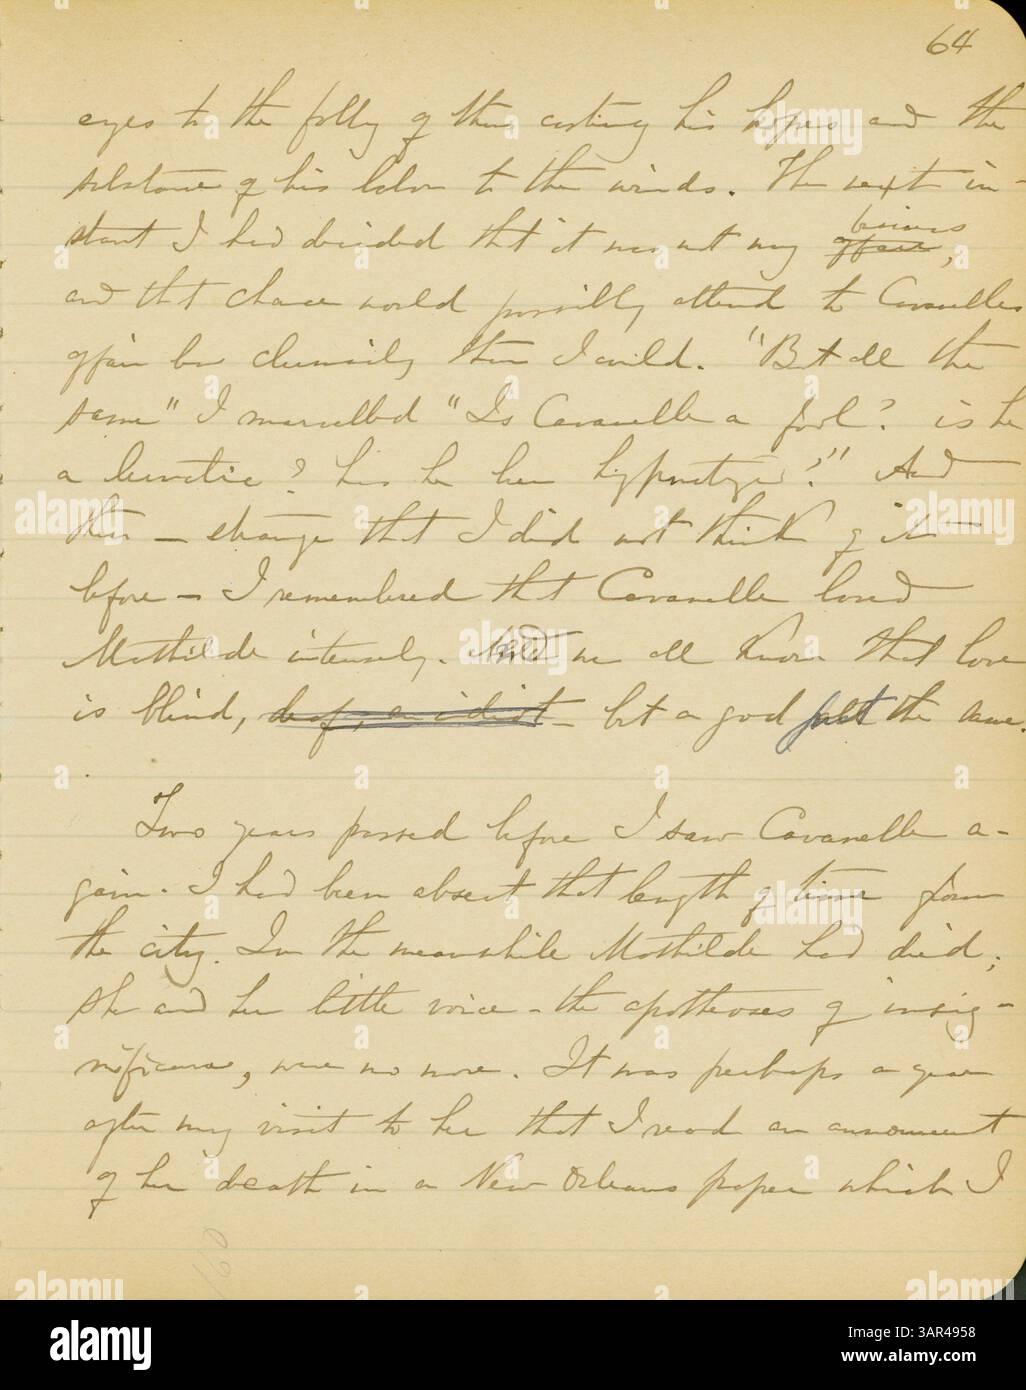 64
eyes to the folly of thus casting his hopes and the
substance of his labor to the winds. The next in-
stant I had decided that it was not my affair business,
and that chance would possibly attend to Cavanelles
affair less clumsily than I could. "But all the
same" I marvelled "Is Cavanelle a fool? is he
a lunatic? has he been hypnotized?" And
then — strange that I did not think of it
before — I remembered that Cavanelle loved
Mathilde intensely. And we all know that love
is blind, deaf, an idiot — but a god just the same.
Two years passed before I saw Cavanelle a-
gain. I had been absent that length of time from
the city. In the meanwhile Mathilde had died;
she and her little voice - the apotheoses of insig-
nificance, were no more. It was perhaps a year
after my visit to her that I read an announcement
of her death in a New Orleans paper which I
160
alamy
www.alamy.com
Image ID: 3AR4958